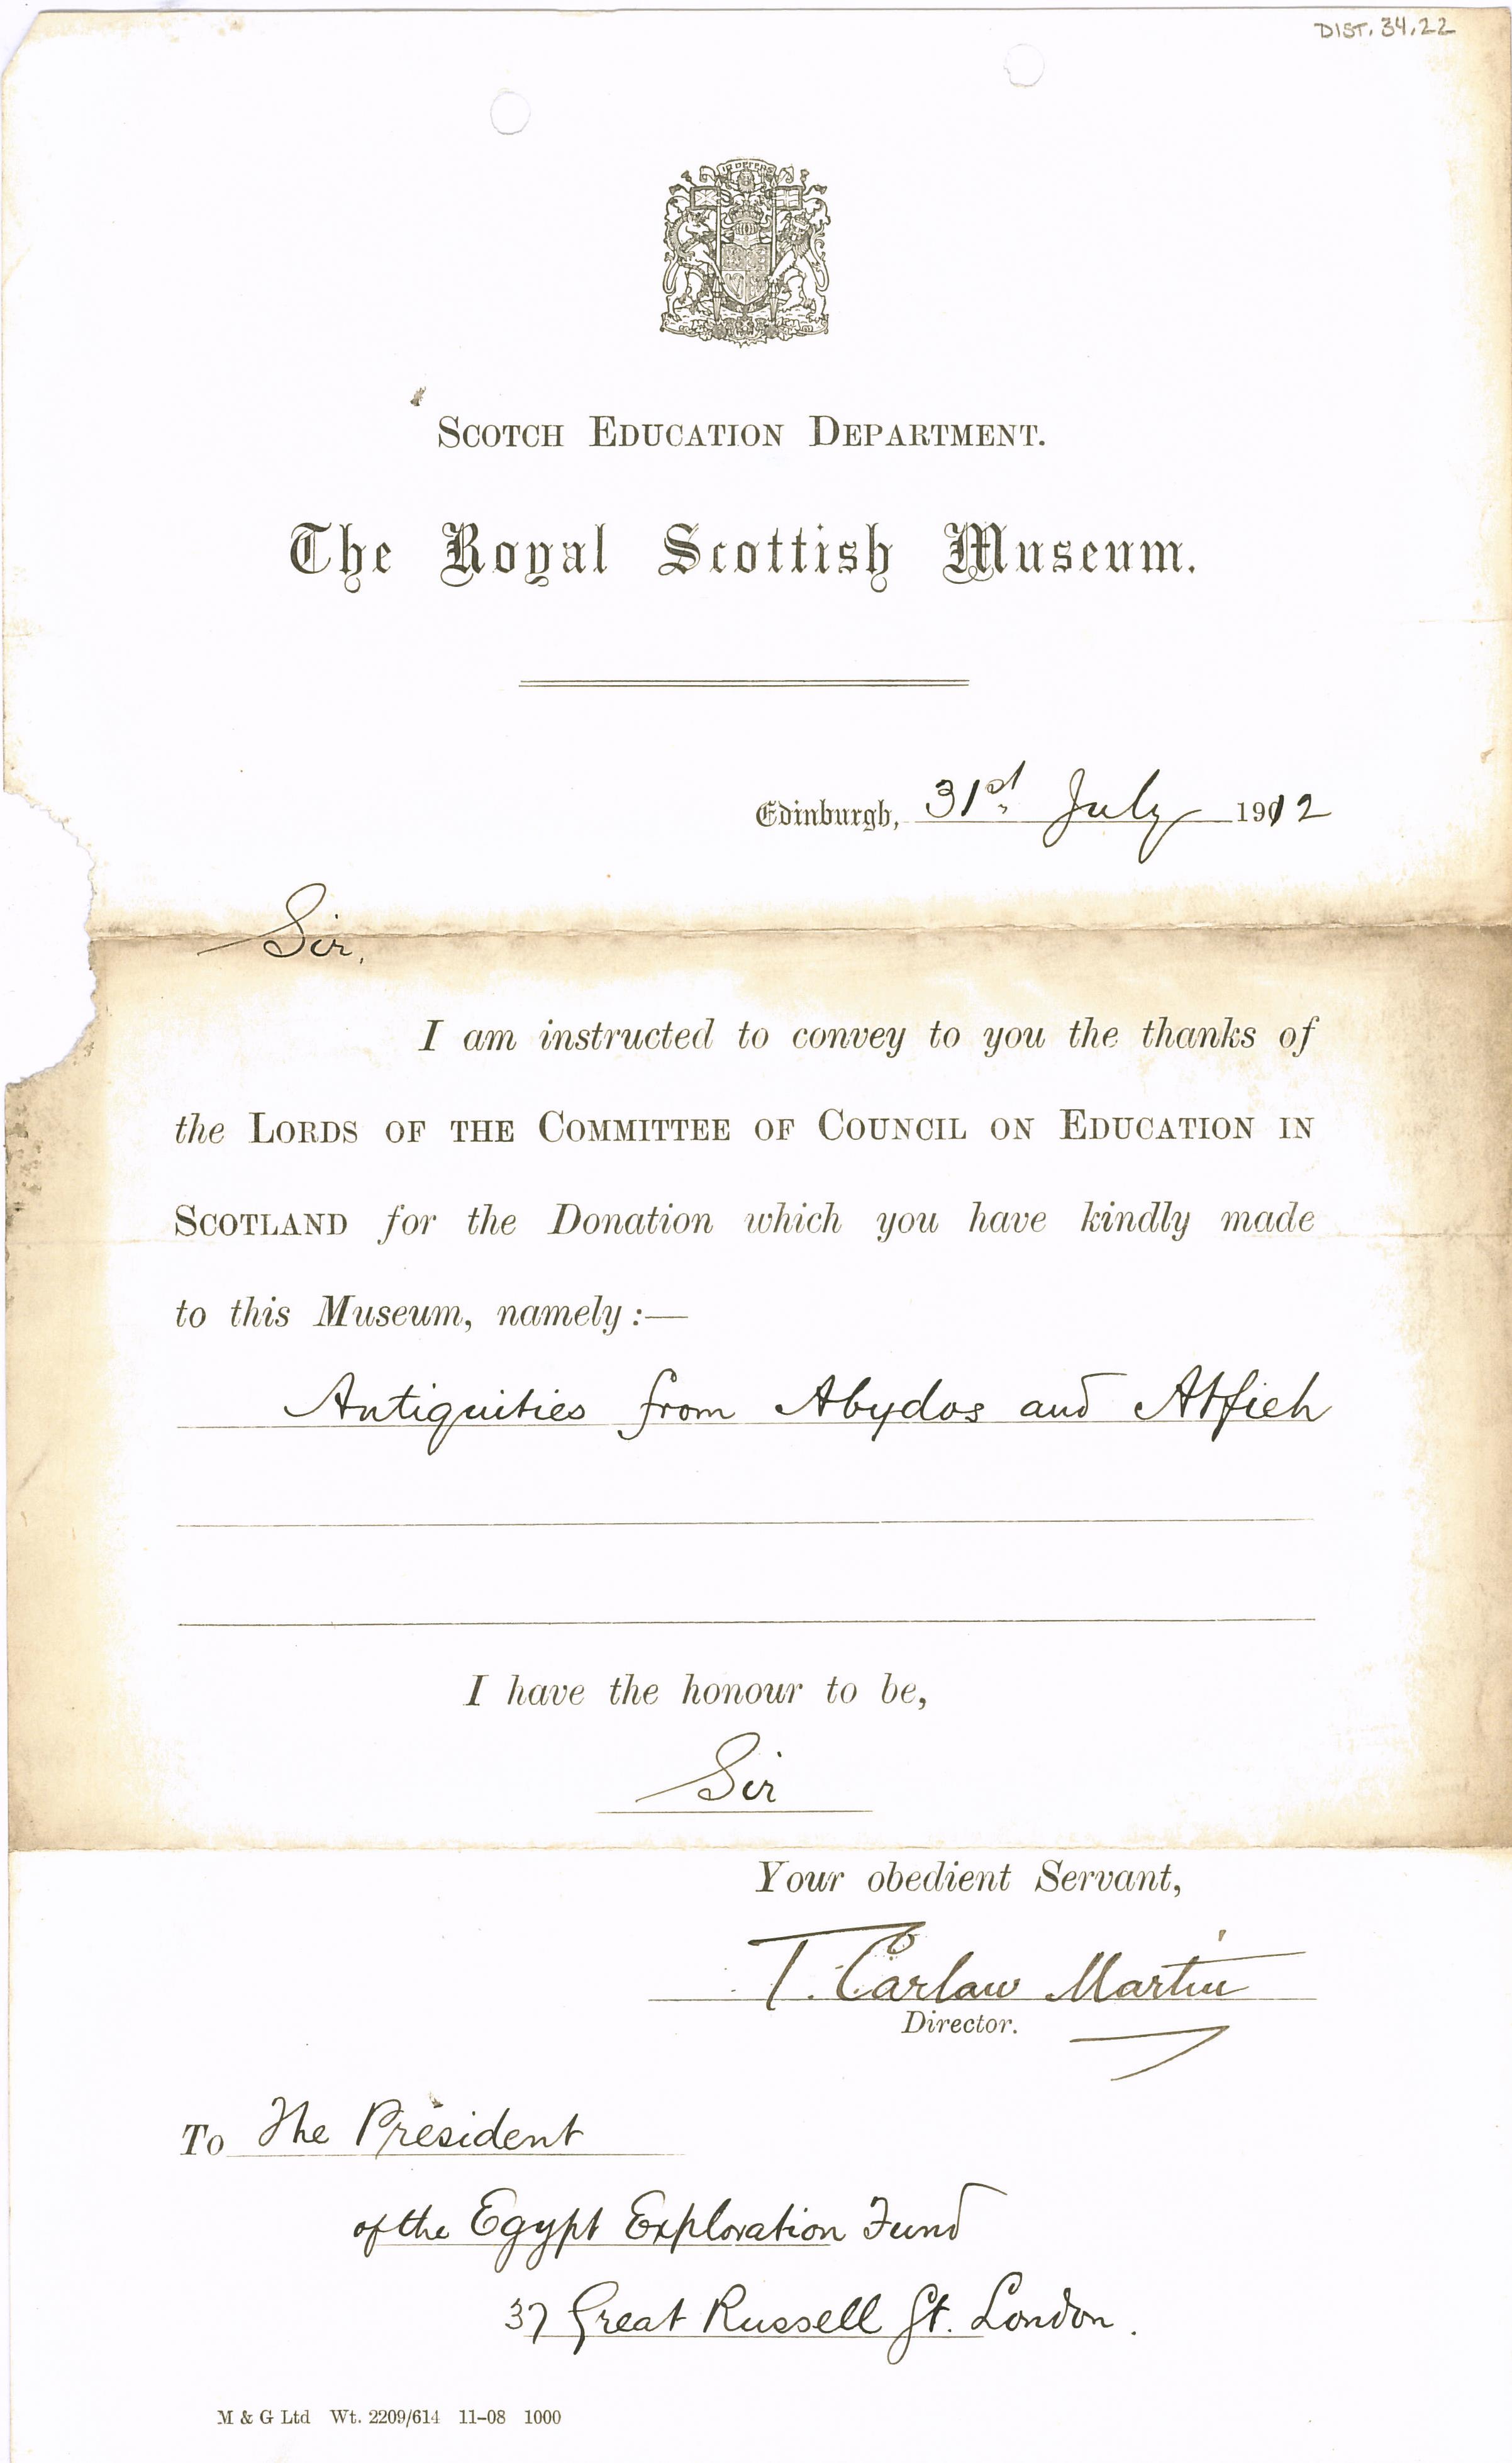 DIST. 34.22
IN DEFENS
SCOTCH EDUCATION DEPARTMENT.
The Royal Scottish Museum.
Edinburgh, 31st July 1912
Sir,
I am instructed to convey to you the thanks of
the LORDS OF THE COMMITTEE OF COUNCIL ON EDUCATION IN
SCOTLAND for the Donation which you have kindly made
to this Museum, namely:—
Antiquities from Abydos and Atfieh
I have the honour to be,
Sir
Your obedient Servant,
T. Carlaw Martin
Director.
To The President
of the Egypt Exploration Fund
37 Great Russell St. London.
M & G Ltd Wt. 2209/614 11-08 1000